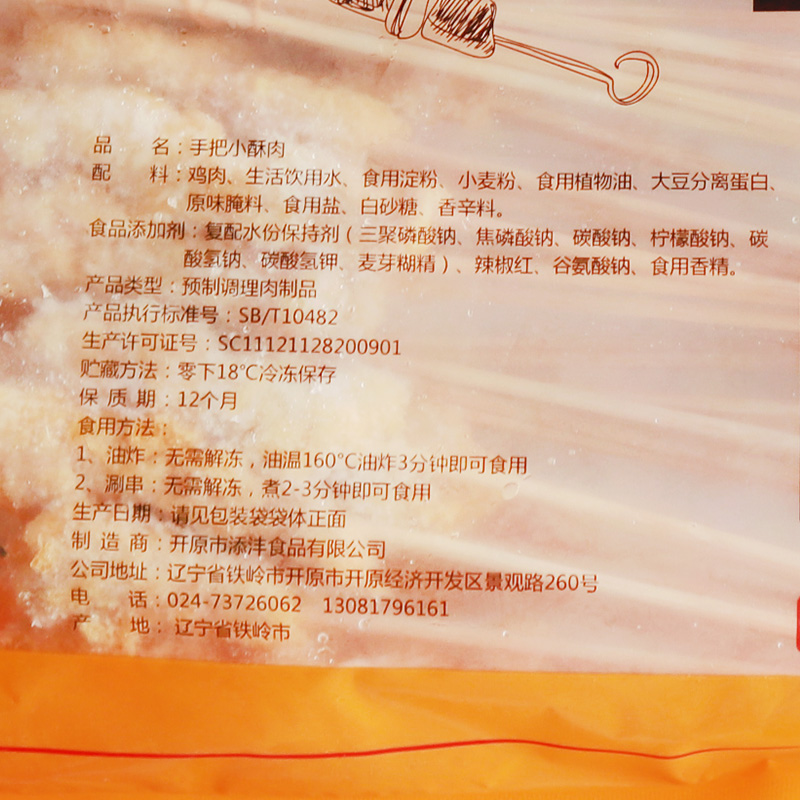 品　　名：手把小酥肉
配　　料：鸡肉、生活饮用水、食用淀粉、小麦粉、食用植物油、大豆分离蛋白、
原味腌料、食用盐、白砂糖、香辛料。
食品添加剂：复配水份保持剂（三聚磷酸钠、焦磷酸钠、碳酸钠、柠檬酸钠、碳
酸氢钠、碳酸氢钾、麦芽糊精）、辣椒红、谷氨酸钠、食用香精。
产品类型：预制调理肉制品
产品执行标准号：SB/T10482
生产许可证号：SC11121128200901
贮藏方法：零下18℃冷冻保存
保 质 期：12个月
食用方法：
1、油炸：无需解冻，油温160℃油炸3分钟即可食用
2、涮串：无需解冻，煮2-3分钟即可食用
生产日期：请见包装袋袋体正面
制 造 商：开原市添沣食品有限公司
公司地址：辽宁省铁岭市开原市开原经济开发区景观路260号
电　　话：024-73726062　13081796161
产　　地：辽宁省铁岭市